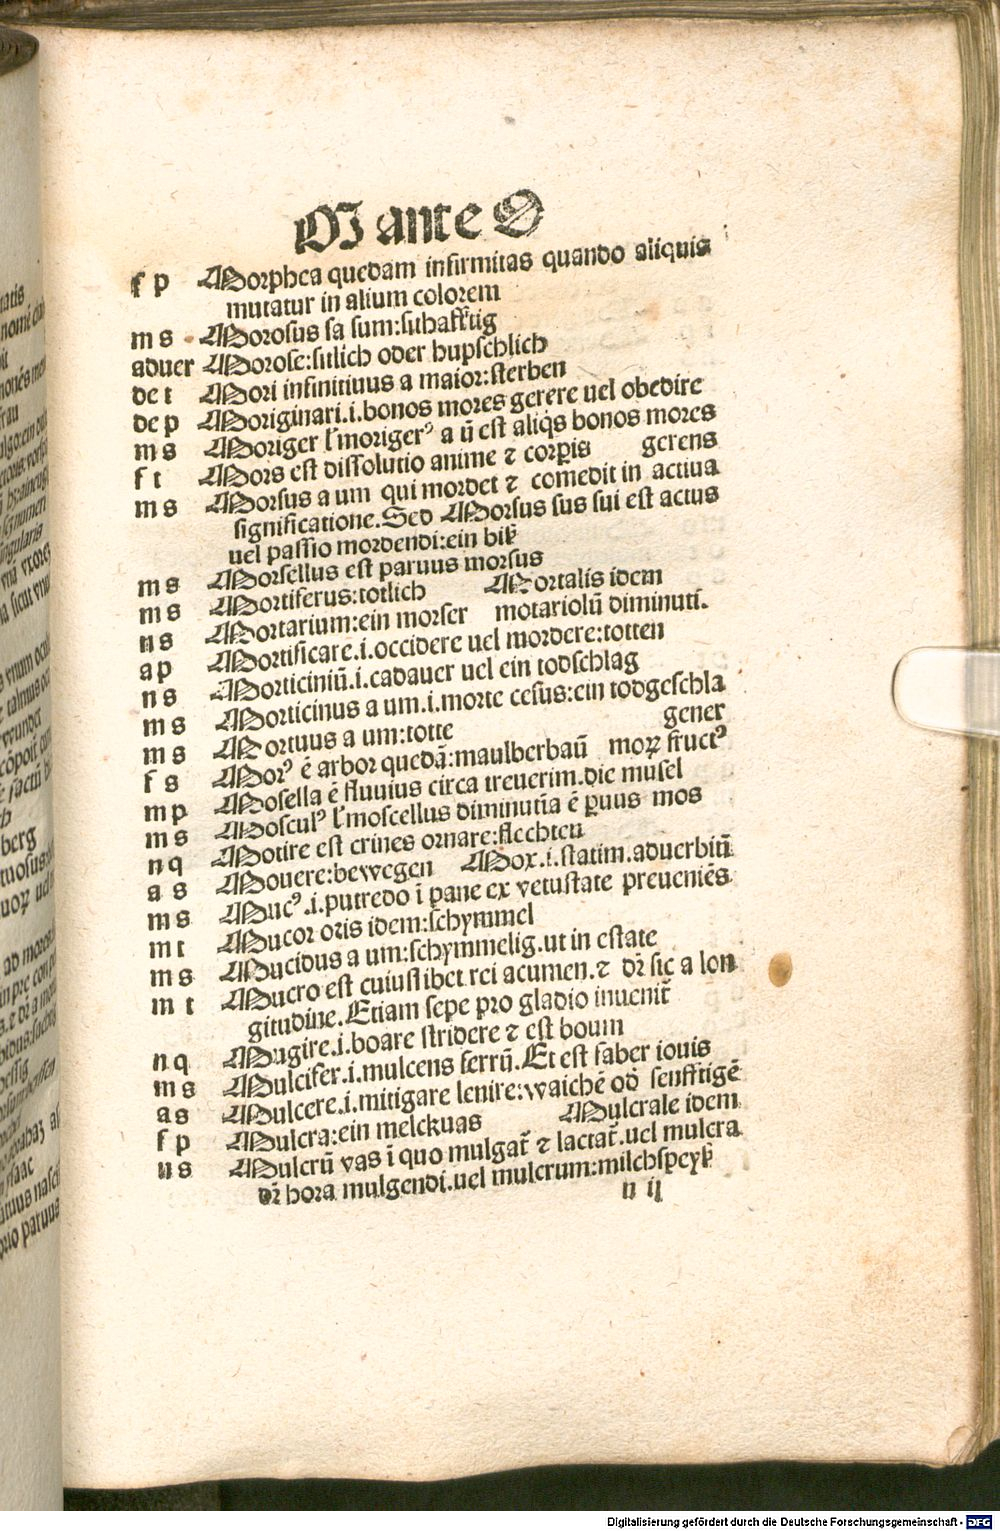 M ante O
f p Morphea quedam infirmitas quando aliquis
mutatur in alium colorem
m s Morosus sa sum:sithafftig
aduer Morose:sitlich oder hupschlich
de t Mori infinitiuus a maior:sterben
de p Moriginari.i.bonos mores gerere uel obedire
m s Moriger l̛ morigerꝰ a ū est aliq̇s bonos mores
f t Mors est dissolutio anime ⁊ corꝑis gerens
m s Morsus a um qui mordet ⁊ comedit in actiua
significatione.Sed Morsus sus sui est actus
uel passio mordendi:ein biß
m s Morsellus est paruus morsus
m s Mortiferus:totlich Mortalis idem
n s Mortarium:ein morser motariolū diminuti.
a p Mortificare.i.occidere uel mordere:totten
n s Morticiniū.i.cadauer uel ein todschlag
m s Morticinus a um.i.morte cesus:ein todgeschla
m s Mortuus a um:totte gener
f s Morꝰ ē arbor quedā:maulberbaū moꝝ fructꝰ
m p Mosella ē fluuius circa treuerim.die musel
m s Mosculꝰ l̛ moscellus diminutīa ē ꝑuus mos
n q Motire est crines ornare:flechten
a s Mouere:bewegen Mox.i.statim.aduerbiū
m s Mucꝰ.i.putredo ī pane ex vetustate preueniēs
m t Mucor oris idem:schymmel
m s Mucidus a um:schymmelig.ut in estate
m t Mucro est cuiuslibet rei acumen.⁊ dr̄ sic a lon
gitudine.Etiam sepe pro gladio inuenit̄
n q Mugire.i.boare stridere ⁊ est boum
m s Mulcifer.i.mulcens ferrū.Et est faber iouis
a s Mulcere.i.mitigare lenire:waichē od̛ senfftigē
f p Mulcra:ein melckuas Mulcrale idem
n s Mulcrū vas ī quo mulgat̄ ⁊ lactat̄.uel mulcra
dr̄ hora mulgendi.uel mulcrum:milchspeyß
n ij
Digitalisierung gefördert durch die Deutsche Forschungsgemeinschaft - DFG